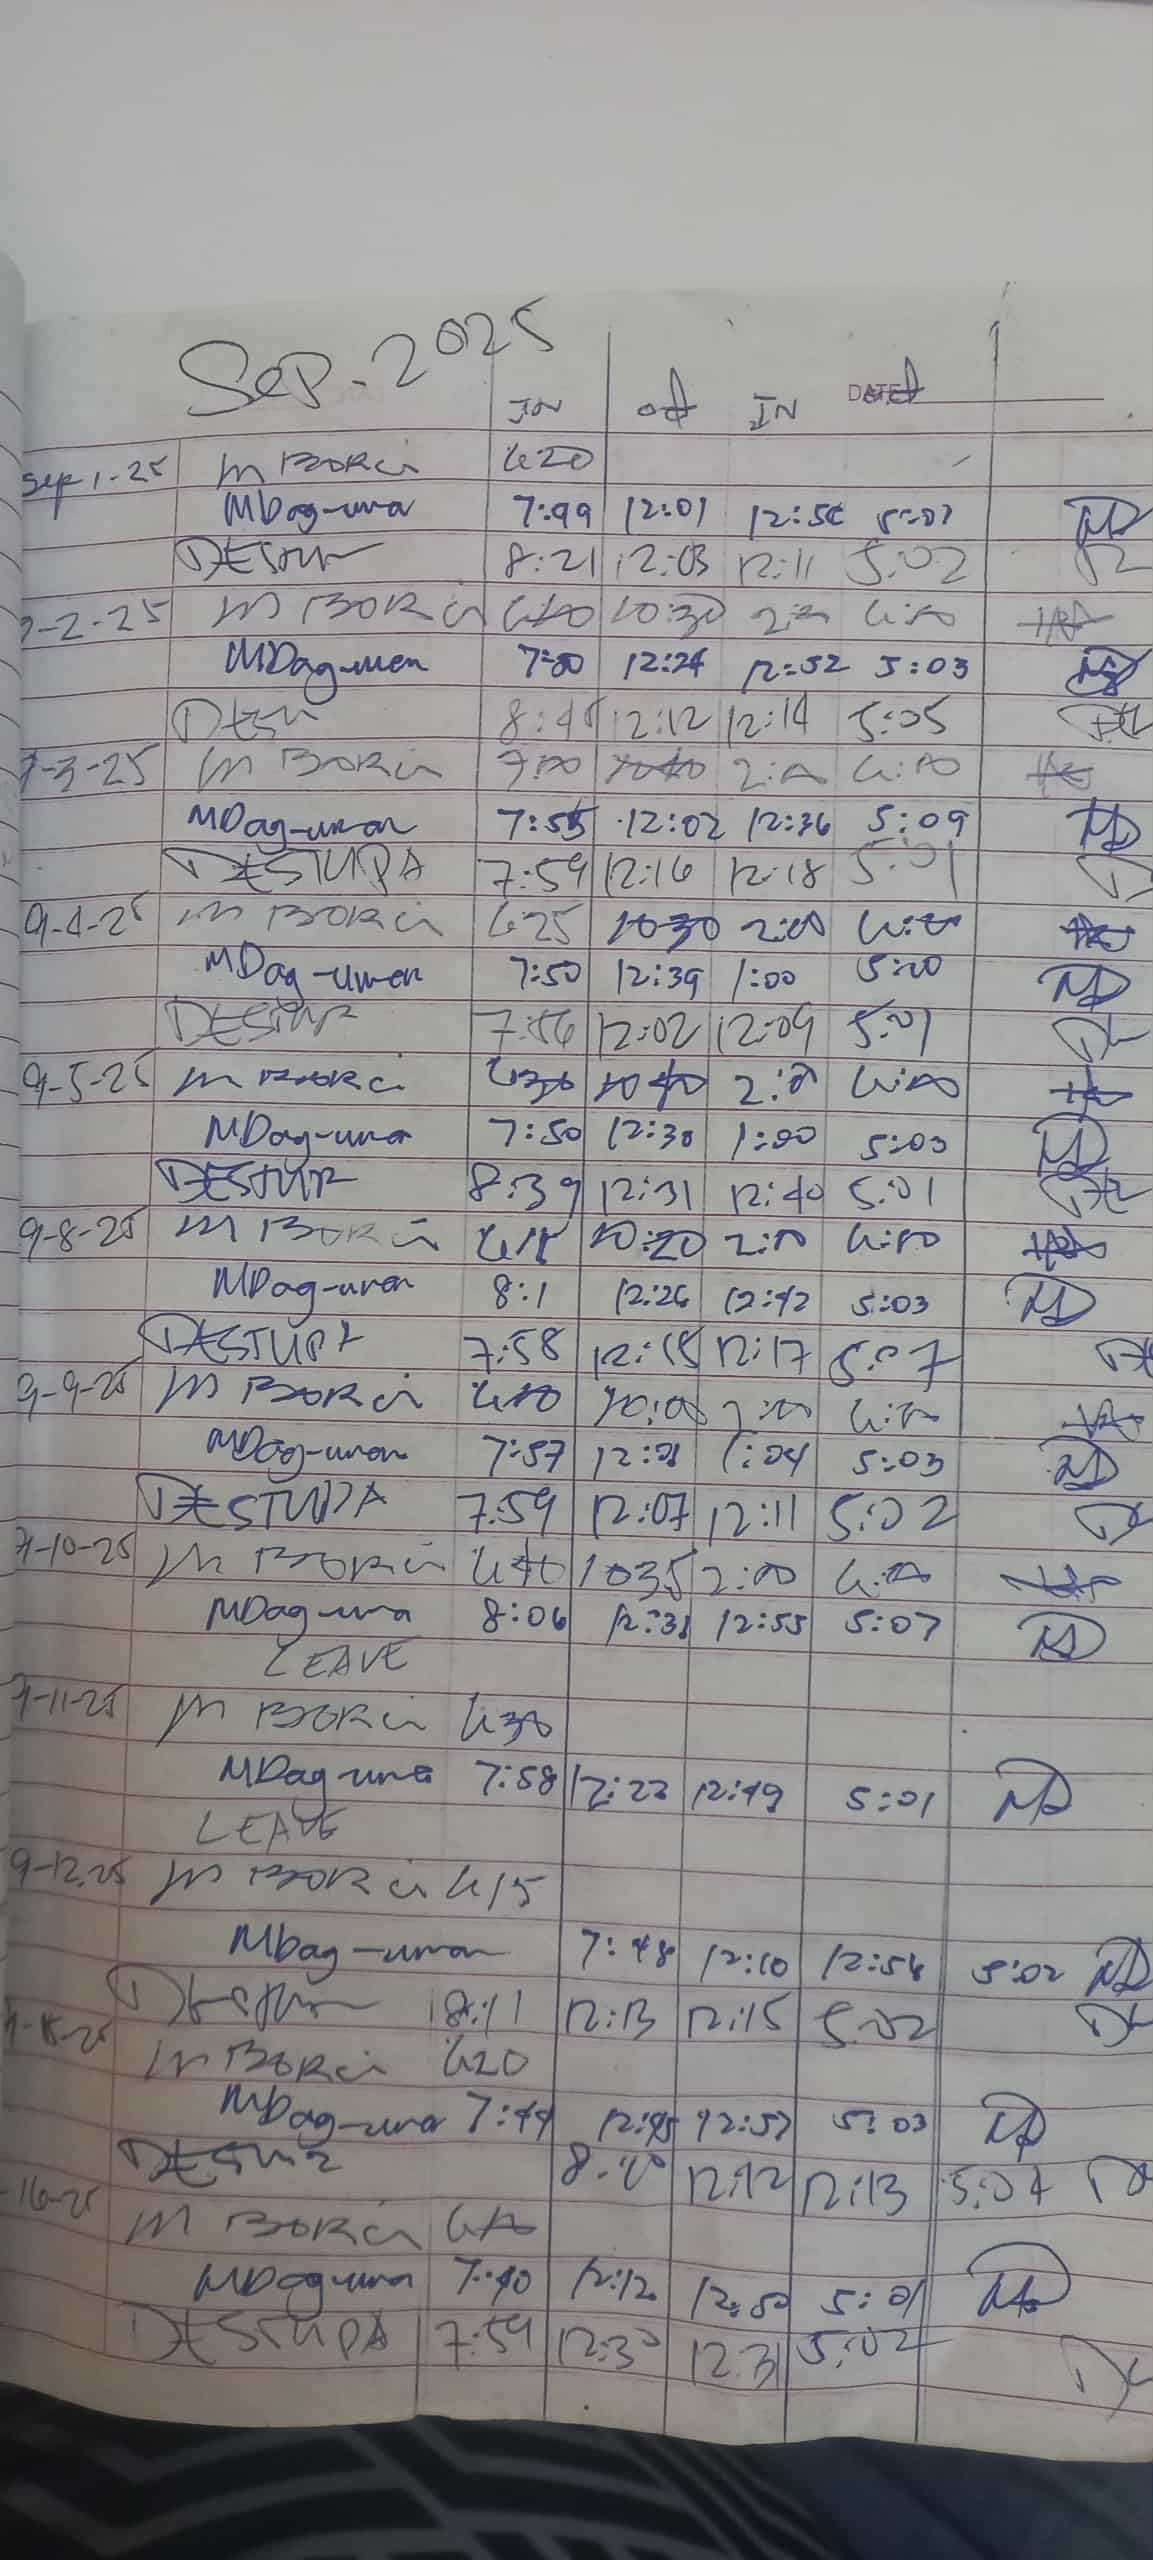 Sep. 2025
IN out IN DATE out
Sep 1-25 M BORCI 620
MDag-uman 7:49 12:01 12:56 5:07 MD
DESTUR 8:21 12:03 12:11 5:02
9-2-25 M BORCI 10:30
MDag-uman 7:50 12:24 12:52 5:03 MD
12:12 12:14 5:05
9-3-25 M BORCI 7:00 2:00 4:00
MDag-uman 7:55 12:02 12:36 5:09 MD
DESTUPA 7:59 12:16 12:18 5:01
9-4-25 M BORCI 625 1030 2:00 4:00
MDag-uman 7:50 12:39 1:00 5:20 MD
DESTUP 7:56 12:02 12:09 5:01
9-5-25 M BORCI 630 1040 2:00 4:00
MDag-uman 7:50 12:30 1:00 5:03 MD
DESTUP 8:39 12:31 12:40 5:01
9-8-25 M BORCI 615 10:20 2:00 4:00
MDag-uman 8:1 12:26 12:42 5:03 MD
DESTUPA 7:58 12:15 12:17 5:07
9-9-25 M BORCI 640 10:00 2:00 4:00
MDag-uman 7:57 12:01 1:04 5:03 MD
DESTUPA 7:59 12:07 12:11 5:02
9-10-25 M BORCI 640 1035 2:00 4:00
MDag-uma 8:06 12:31 12:55 5:07 MD
LEAVE
9-11-25 M BORCI 630
MDag-uma 7:58 12:22 12:49 5:01 MD
LEAVE
9-12-25 M BORCI 615
MDag-uman 7:48 12:10 12:54 5:02 MD
8:11 12:13 12:15 5:02
M BORCI 620
MDag-uma 7:44 12:45 12:57 5:03 MD
12:12 12:13 5:04
16-25
M BORCI
MDag-uma 7:40 12:12 12:50 5:01 MD
DESTUPA 7:59 12:30 12:31 5:02